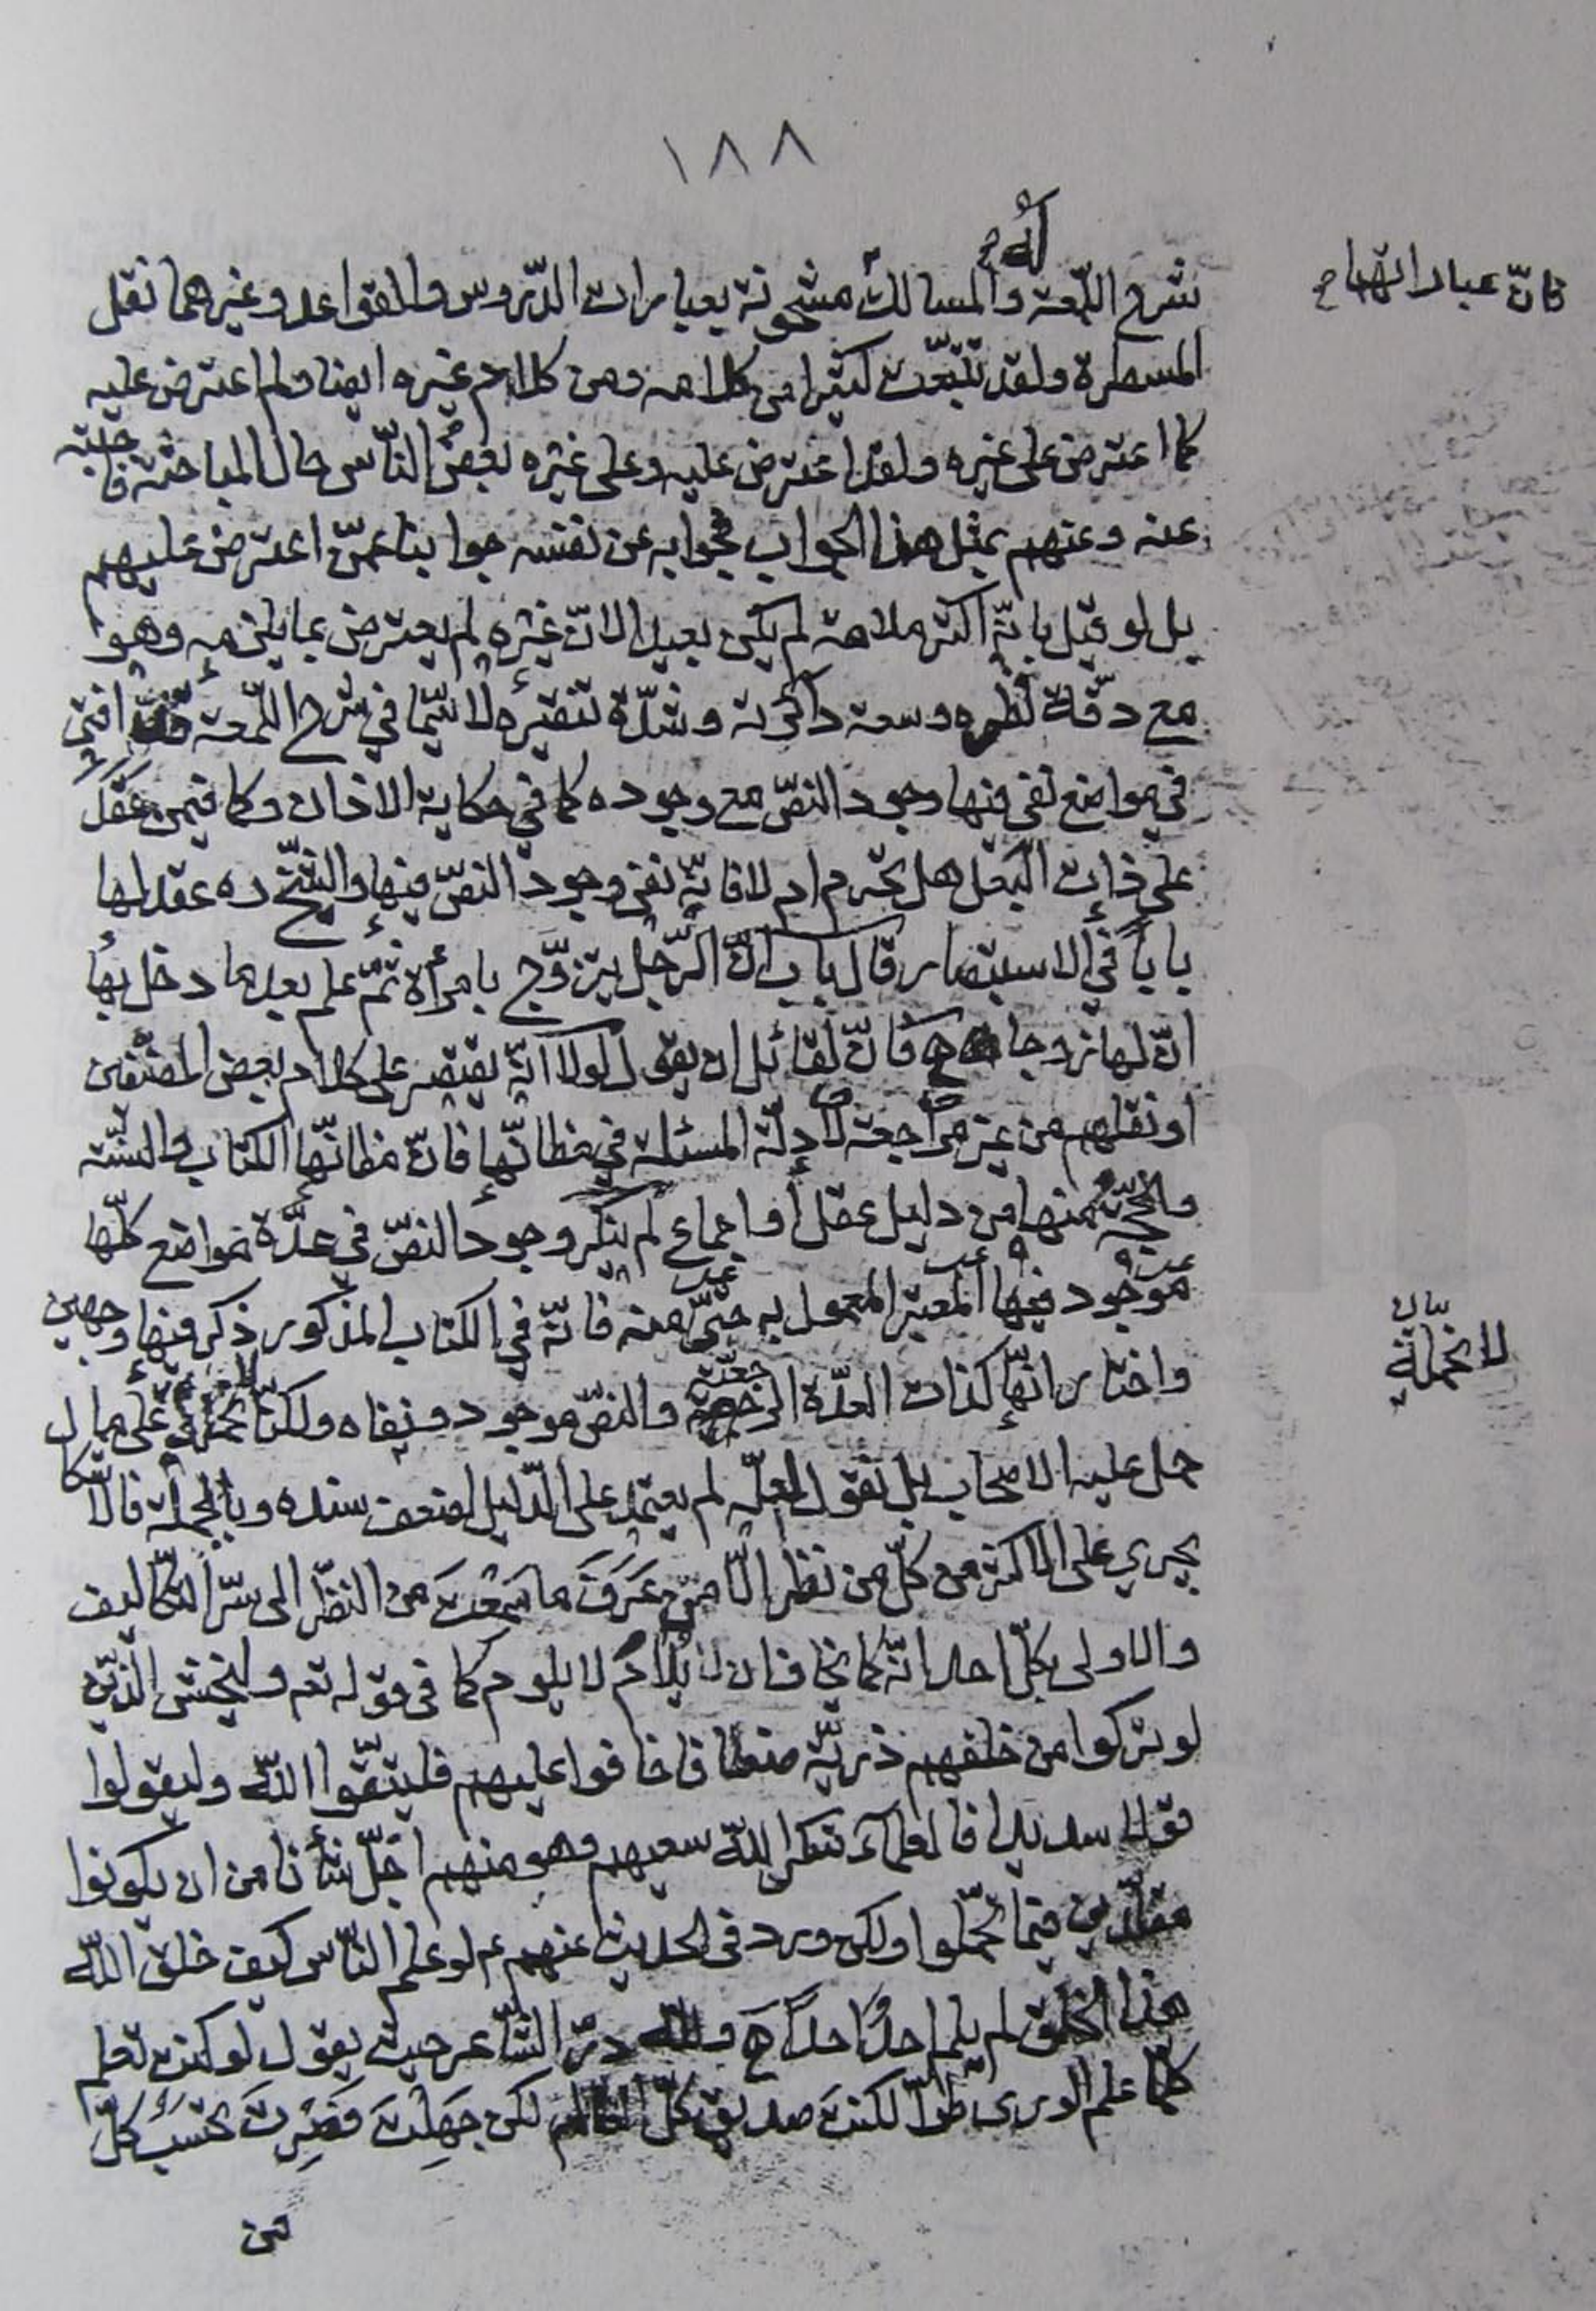 ١٨٨
شرح اللّمعة والمسالك مشحونة بعبارات الدّروس والقواعد وغيرهما نقل
فانّ عباراتهما
المسطرة ولقد تتبّعت كثيرا من كلامه ومن كلام غيره ايضا ولم اعترض عليه
كما اعترض على غيره ولقد اعترض عليه وعلى غيره بعض النّاس حال المباحثة فاجبته
عنه وعنهم بمثل هذا الجواب فجوابه عن نفسه جوابنا عمّن اعترض عليهم
بل لو قيل بانّه اكثر ملامة لم يكن بعيدا لانّ غيره لم يعترض بما يلزمه وهو
مع دقّة نظره وسعة دائرته وشدّة تنقيره لا سيّما في شرح اللّمعة افتى
في مواضع نفى فيها وجود النصّ مع وجوده كما في حكاية الاذان وكما فيمن عقد
على ذات البعل هل تحرم ام لا فانّه نفى وجود النصّ فيها والشّيخ ره عقد لها
باباً في الاستبصار قال باب انّ الرّجل يتزوّج بامرأة ثمّ علم بعد ما دخل بها
انّ لها زوجا فانّ لقائل ان يقول لولا انّه يقتصر على كلام بعض المصنّفين
او نقلهم من غير مراجعة لادلّة المسئلة في مظانّها فانّ مظانّها الكتاب والسنّة
والحجّة منها من دليل عقل او اجماع لم ينكر وجود النصّ في عدّة مواضع كلّها
موجود فيها المعتبر المعمول به حتّى منه فانّه في الكتاب المذكور ذكر فيها وجهين
واختار انّها كذات العدّة الرّجعيّة والنصّ موجود ونفاه ولكنّا نحمله على ما
بيان
للانحملة
حمل عليه الاصحاب بل نقول لعلّه لم يعتمد على الدّليل لضعف سنده وبالجملة فالا
يجري على الاكثر من كلّ من نظر الّا من عرف ما سمعت من النظر الى سرّ التكاليف
والاولى بكلّ احد انّه كما يخاف ان لا يلام لا يلوم كما في قوله تعه وليخش الّذين
لو تركوا من خلفهم ذريّة ضعافا خافوا عليهم فليتّقوا اللّه وليقولوا
قولا سديدا فالعلمآء شكر اللّه سعيهم وهو منهم اجلّ شأنا من ان يكونوا
مقلّدين فيما تحمّلوا ولكن ورد في الحديث عنهم ع لو علم النّاس كيف خلق اللّه
هذا الخلق لم يلم احدٌ احداً ح وللّه درّ الشّاعر حيث يقول لو كنت تعلم
كلّما علم الورى طرّا لكنت صديق كلّ العالم لكن جهلت فصرت تحسب كلّ
من